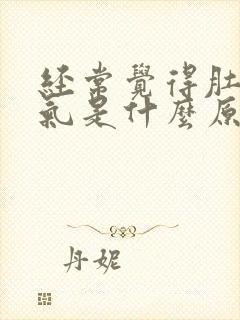 經常覺得肚
氣是什麼原
丹妮